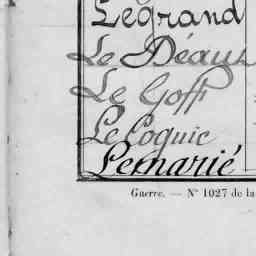 Legrand
Le Déaut
Le Goff
Le Coguic
Lemarié
Guerre. — N° 1027 de la